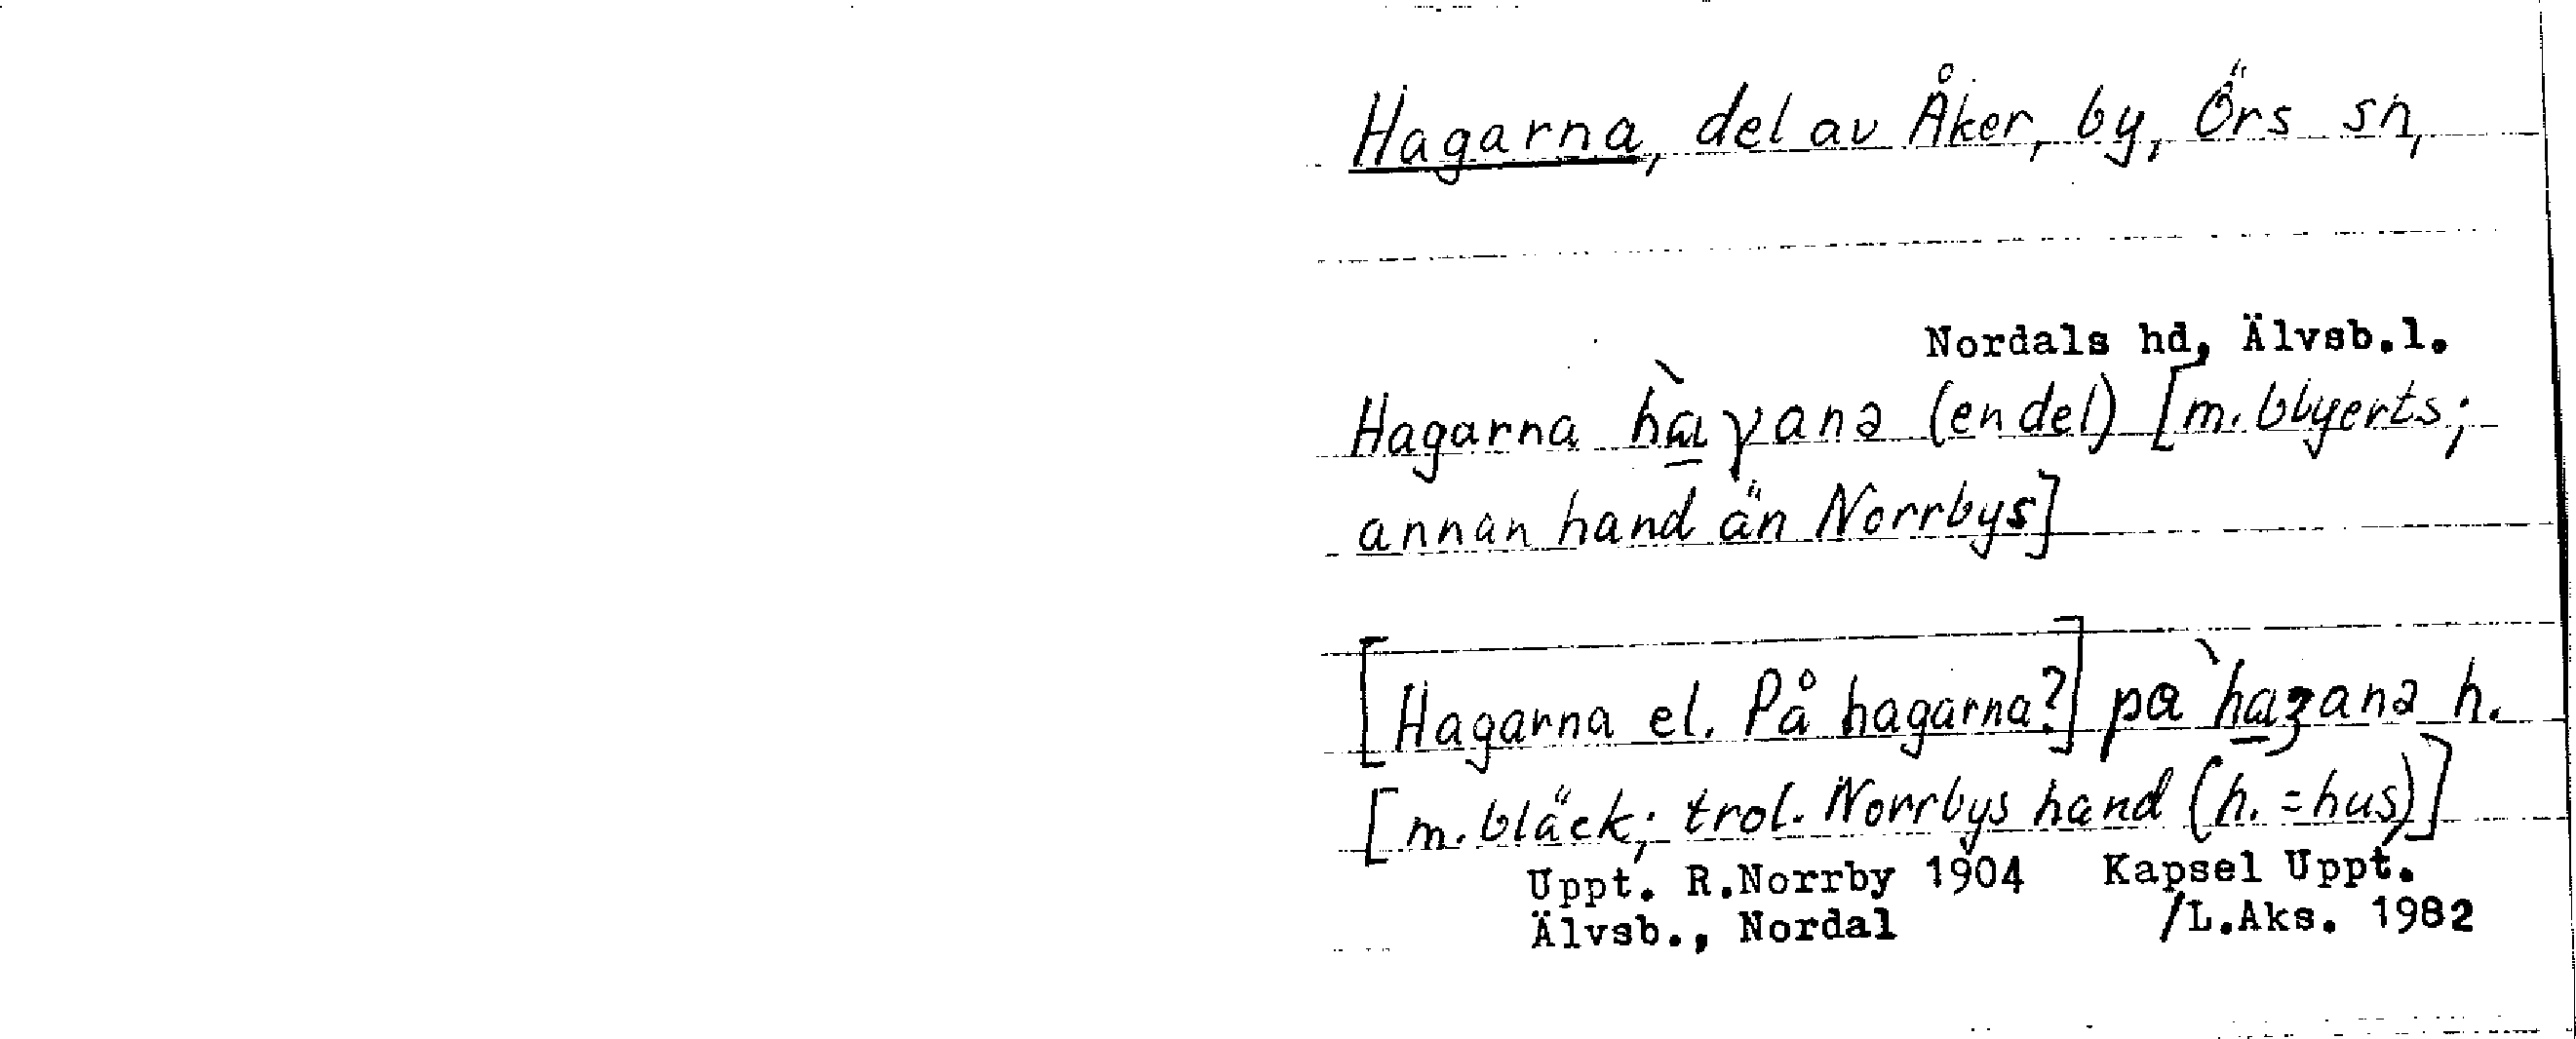 Hagarna, del av Åker, by, Örs sn,
Nordals hd, Älvsb.l.
Hagarna hàγanə (en del) [m. blyerts;
annan hand än Norrbys]
[Hagarna el. På hagarna?] pa hàʒanə h.
[m. bläck; trol. Norrbys hand (h. = hus)]
Uppt. R.Norrby 1904 Kapsel Uppt.
Älvsb., Nordal /L.Aks. 1982